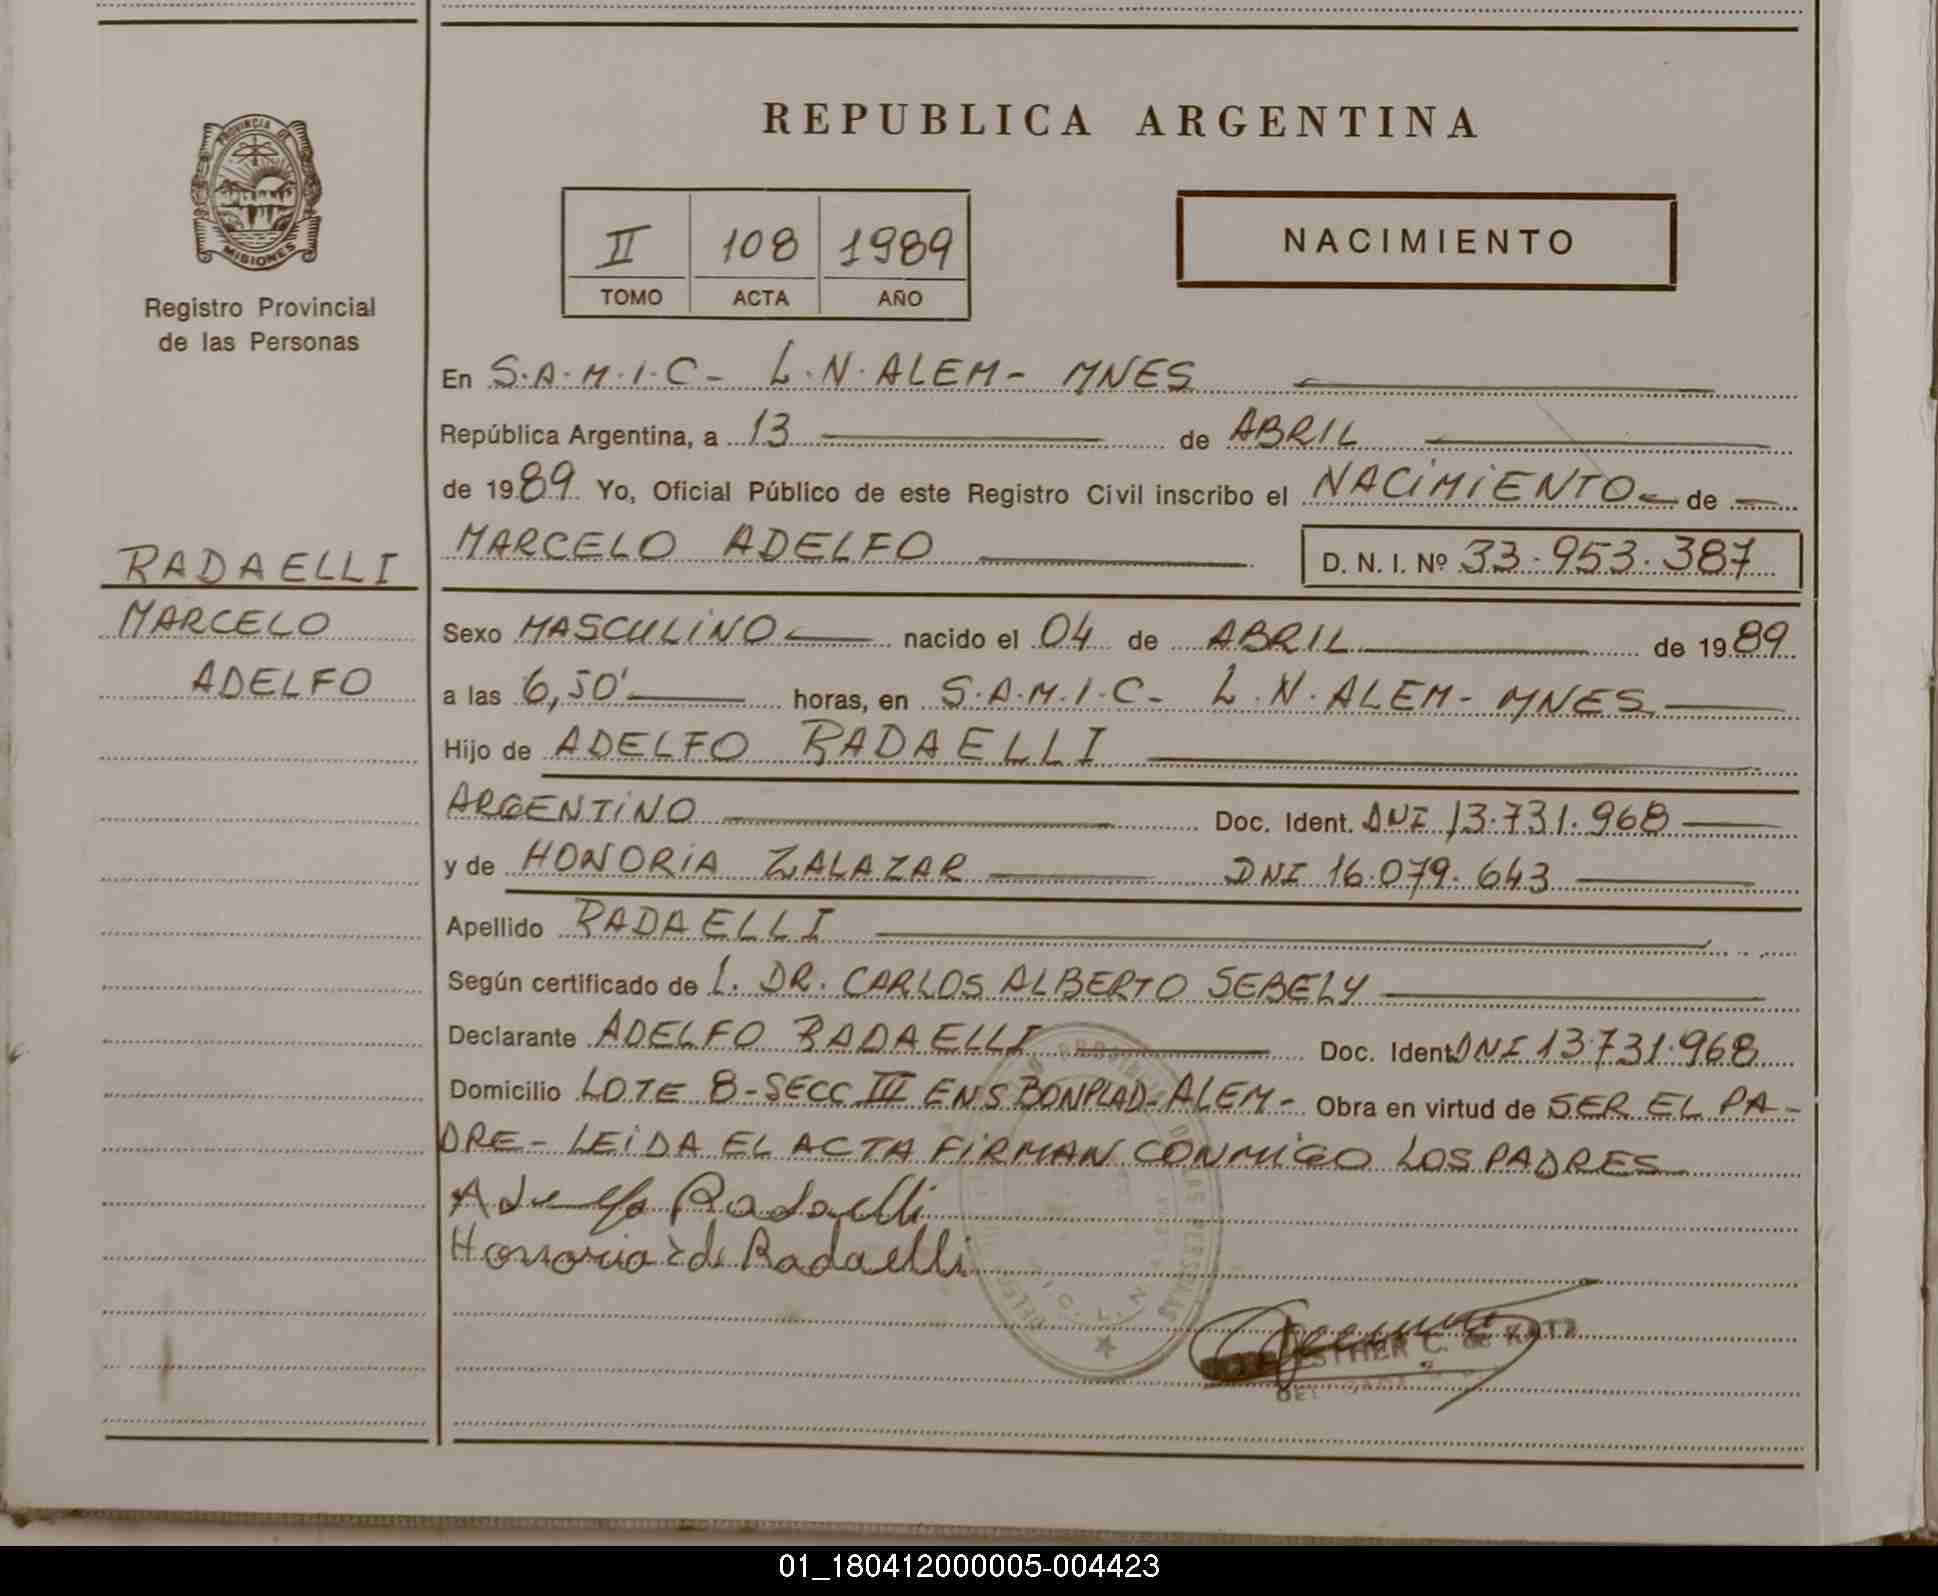 REPUBLICA ARGENTINA
PROVINCIA DE
MISIONES
Registro Provincial
de las Personas
II 108 1989
TOMO ACTA AÑO
NACIMIENTO
En S.A.M.I.C- L.N.ALEM- MNES
República Argentina, a 13 de ABRIL
de 1989 Yo, Oficial Público de este Registro Civil inscribo el NACIMIENTO de
MARCELO ADELFO D. N. I. Nº 33.953.387
RADAELLI
MARCELO
ADELFO
Sexo MASCULINO nacido el 04 de ABRIL de 1989
a las 6,50' horas, en S.A.M.I.C- L.N.ALEM- MNES
Hijo de ADELFO RADAELLI
ARGENTINO Doc. Ident. DNI 13.731.968
y de HONORIA ZALAZAR DNI 16.079.643
Apellido RADAELLI
Según certificado de L. DR. CARLOS ALBERTO SEBELY
Declarante ADELFO RADAELLI Doc. Ident. DNI 13.731.968
Domicilio LOTE 8-SECC III ENS BONPLAD-ALEM- Obra en virtud de SER EL PA-
DRE- LEIDA EL ACTA FIRMAN CONMIGO LOS PADRES
Adelfo Radaelli
Honoria Z d Radaelli
ESTHER C. de KATZ
01_180412000005-004423